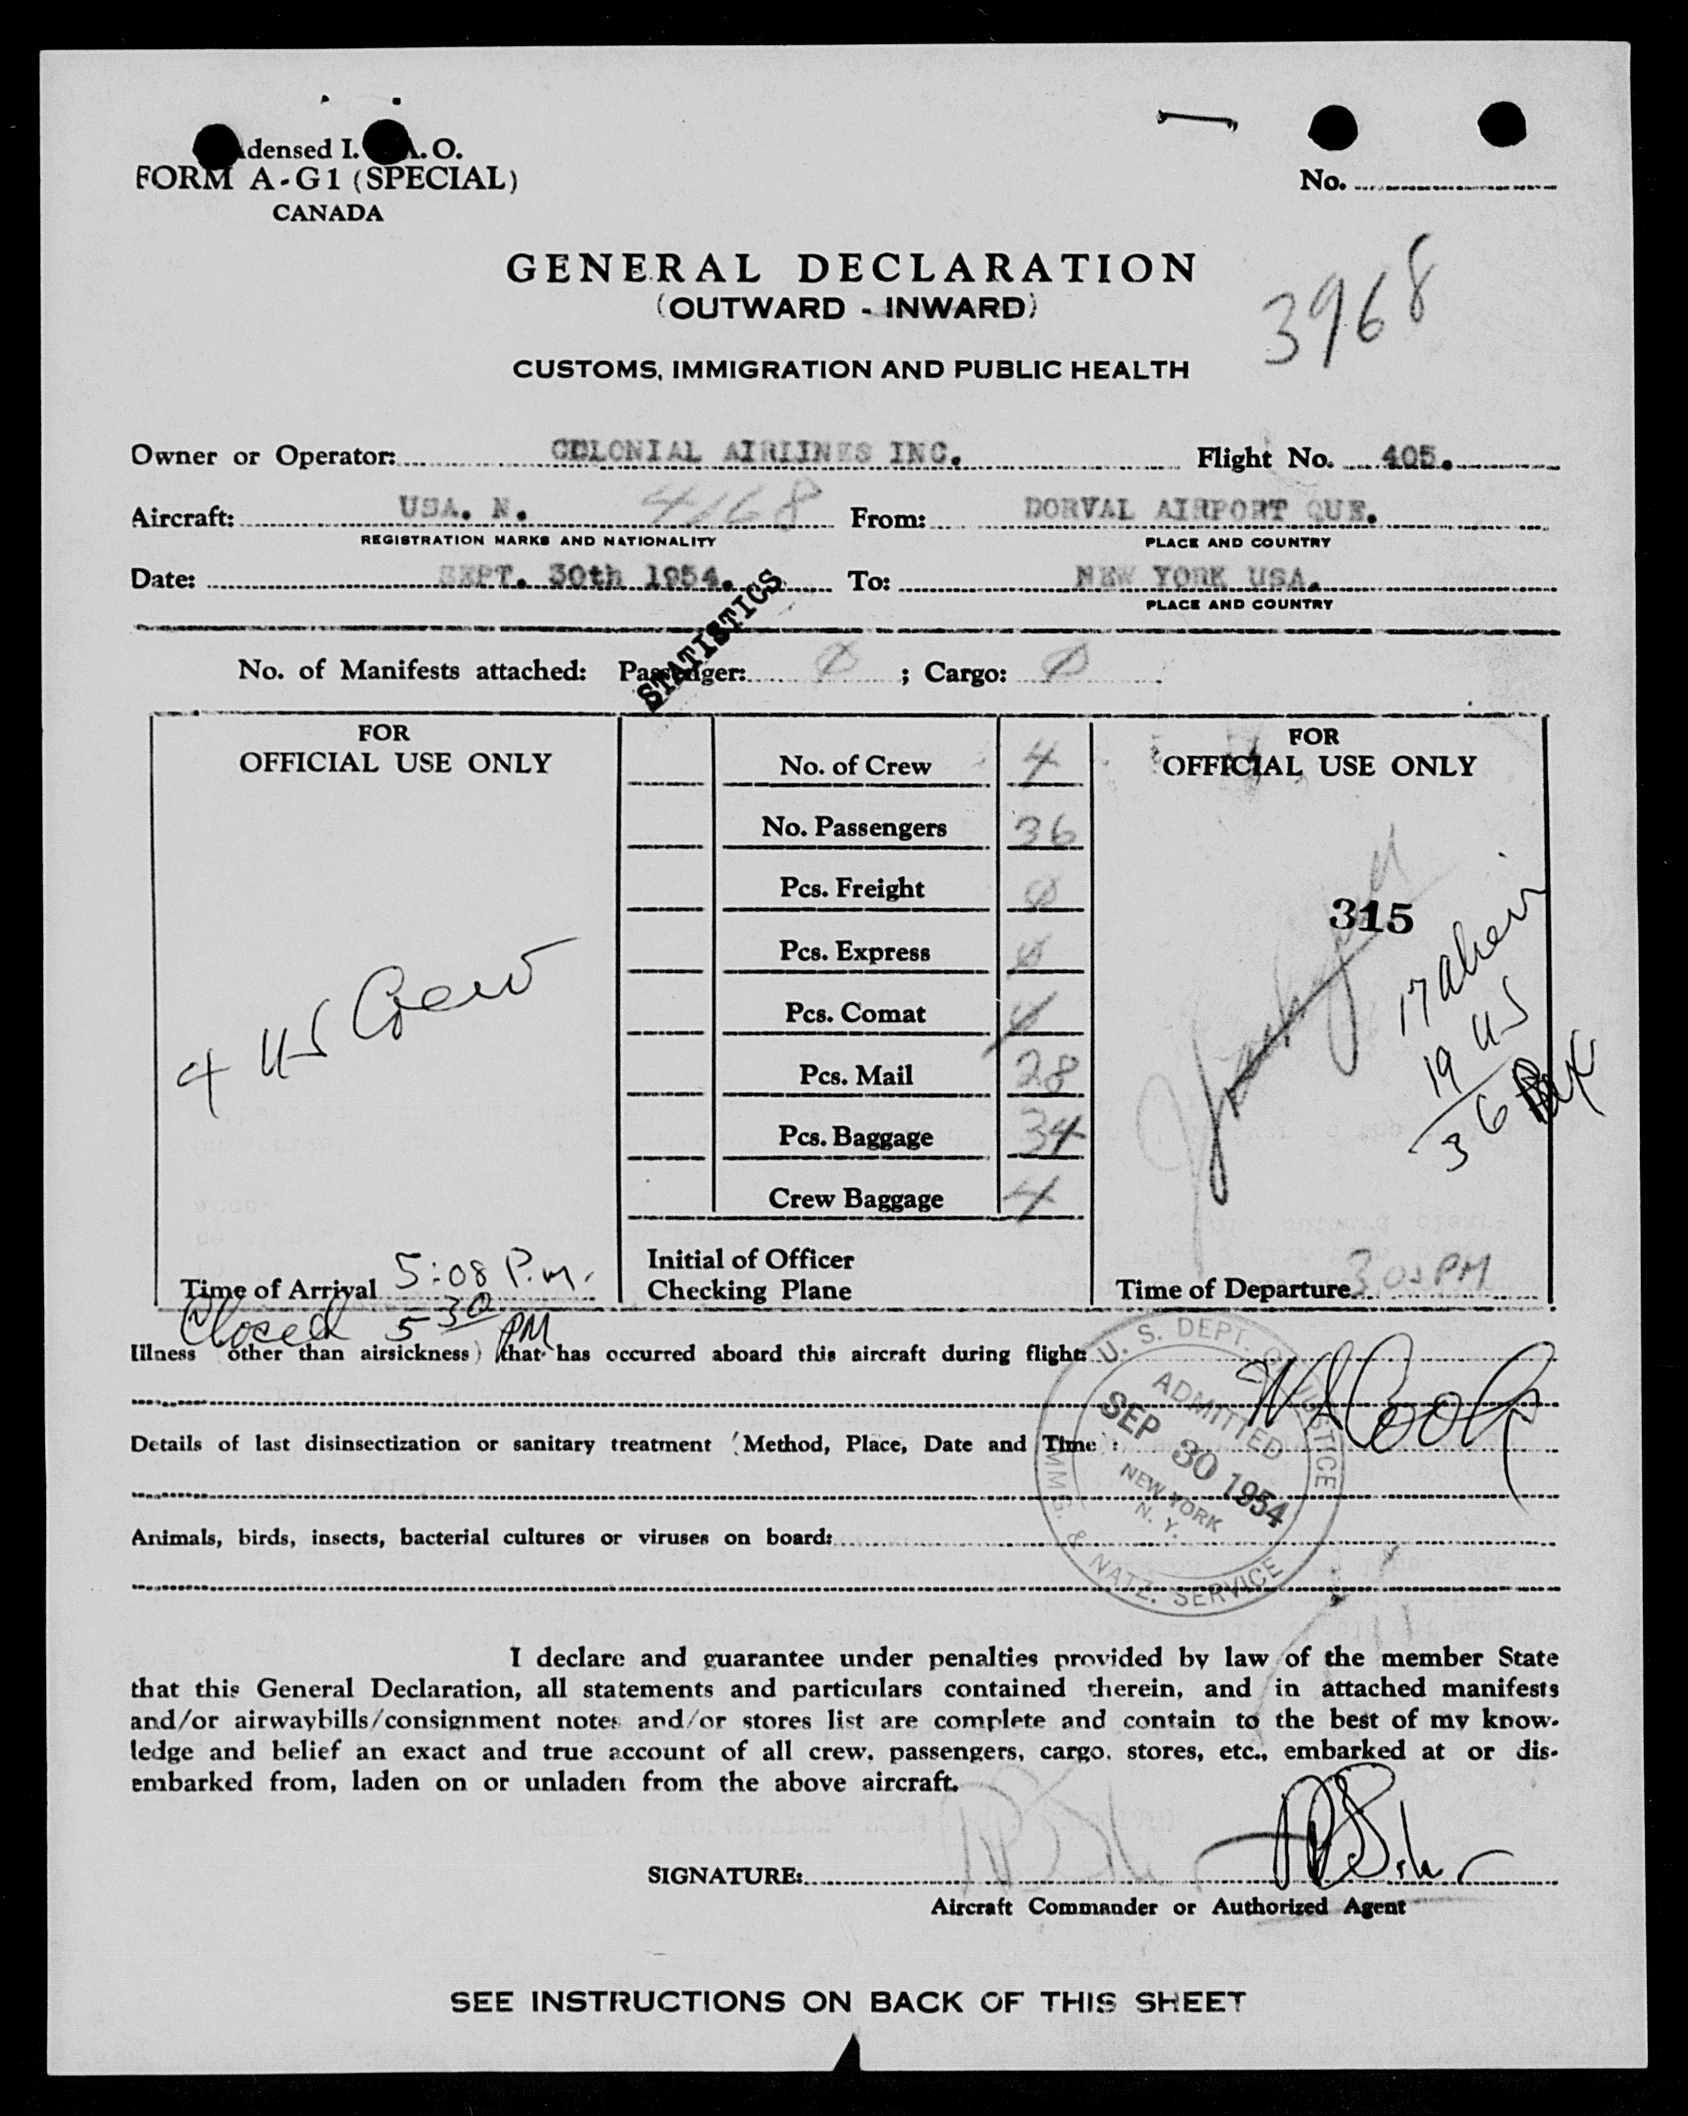 densed I. A.O.
FORM A-G1 (SPECIAL)
CANADA
No.
GENERAL DECLARATION
(OUTWARD - INWARD)
3968
CUSTOMS, IMMIGRATION AND PUBLIC HEALTH
Owner or Operator: COLONIAL AIRLINES INC. Flight No. 405.
Aircraft: USA. N. 4168 From: DORVAL AIRPORT QUE.
REGISTRATION MARKS AND NATIONALITY PLACE AND COUNTRY
Date: SEPT. 30th 1954. To: NEW YORK USA.
PLACE AND COUNTRY
STATISTICS
No. of Manifests attached: Passenger: 0 ; Cargo: 0
FOR
OFFICIAL USE ONLY
4 US Crew
Time of Arrival 5:08 P.m.
Closed 5 30 PM
No. of Crew 4
No. Passengers 36
Pcs. Freight 0
Pcs. Express 0
Pcs. Comat 0
Pcs. Mail 28
Pcs. Baggage 34
Crew Baggage 4
Initial of Officer
Checking Plane
FOR
OFFICIAL USE ONLY
315
17 alien
19 US
36 Pax
Time of Departure 3 02 PM
Illness (other than airsickness) that has occurred aboard this aircraft during flight:
Details of last disinsectization or sanitary treatment (Method, Place, Date and Time):
Animals, birds, insects, bacterial cultures or viruses on board:
U. S. DEPT. OF JUSTICE
ADMITTED
SEP 30 1954
NEW YORK
N. Y.
IMMG. & NATZ. SERVICE
I declare and guarantee under penalties provided by law of the member State
that this General Declaration, all statements and particulars contained therein, and in attached manifests
and/or airwaybills/consignment notes and/or stores list are complete and contain to the best of my know-
ledge and belief an exact and true account of all crew, passengers, cargo, stores, etc., embarked at or dis-
embarked from, laden on or unladen from the above aircraft.
SIGNATURE:
Aircraft Commander or Authorized Agent
SEE INSTRUCTIONS ON BACK OF THIS SHEET